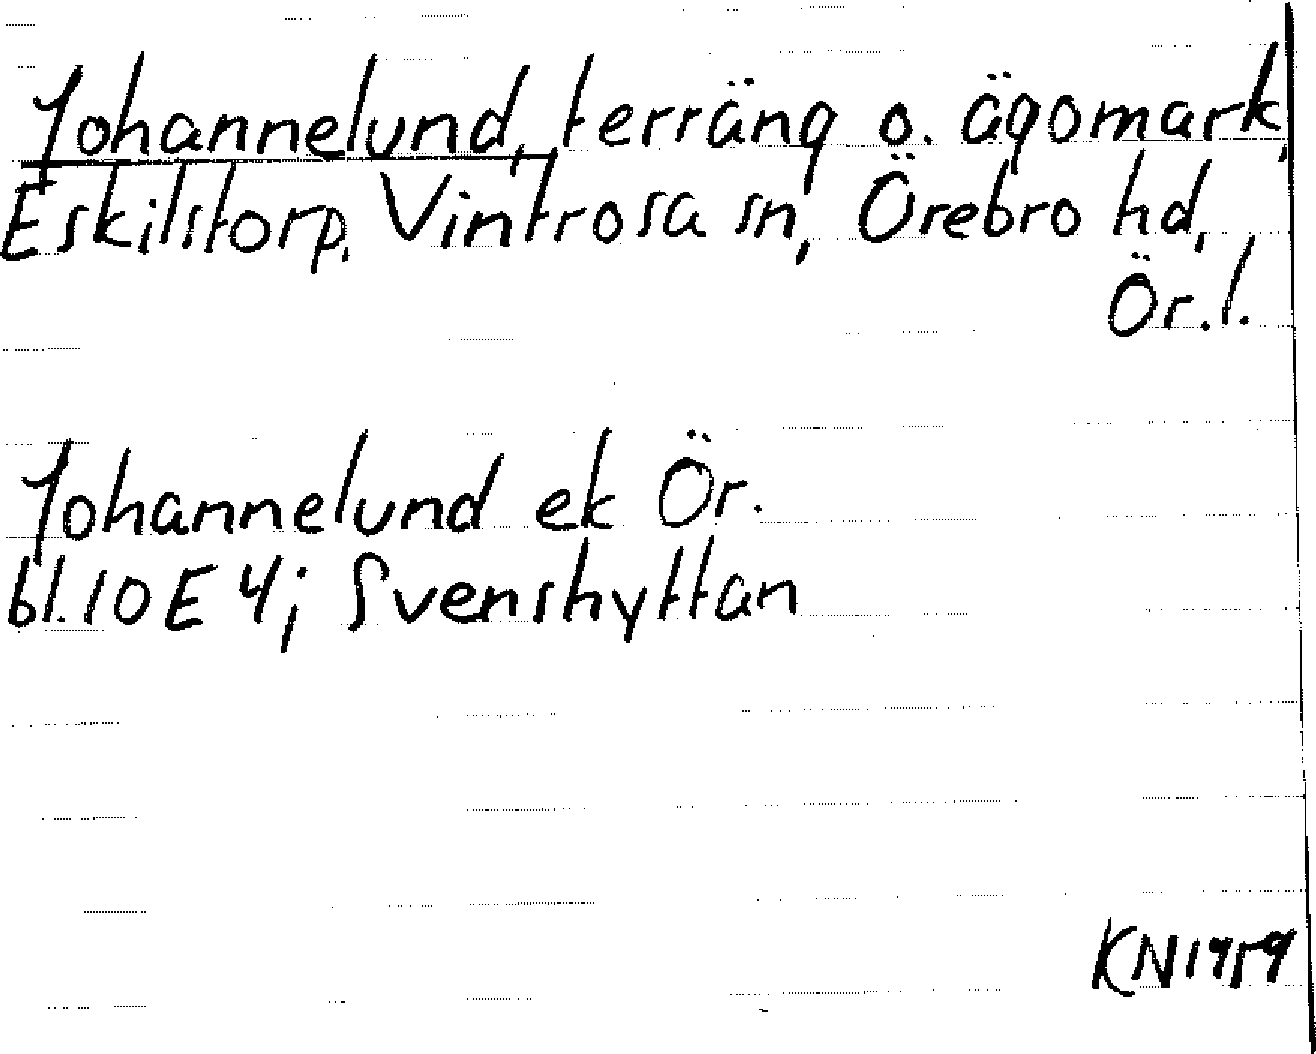 Johannelund, terräng o. ägomark,
Eskilstorp, Vintrosa sn, Örebro hd,
Ör. l.
Johannelund ek Ör.
bl. 10 E 4; Svenshyttan
KN 1959